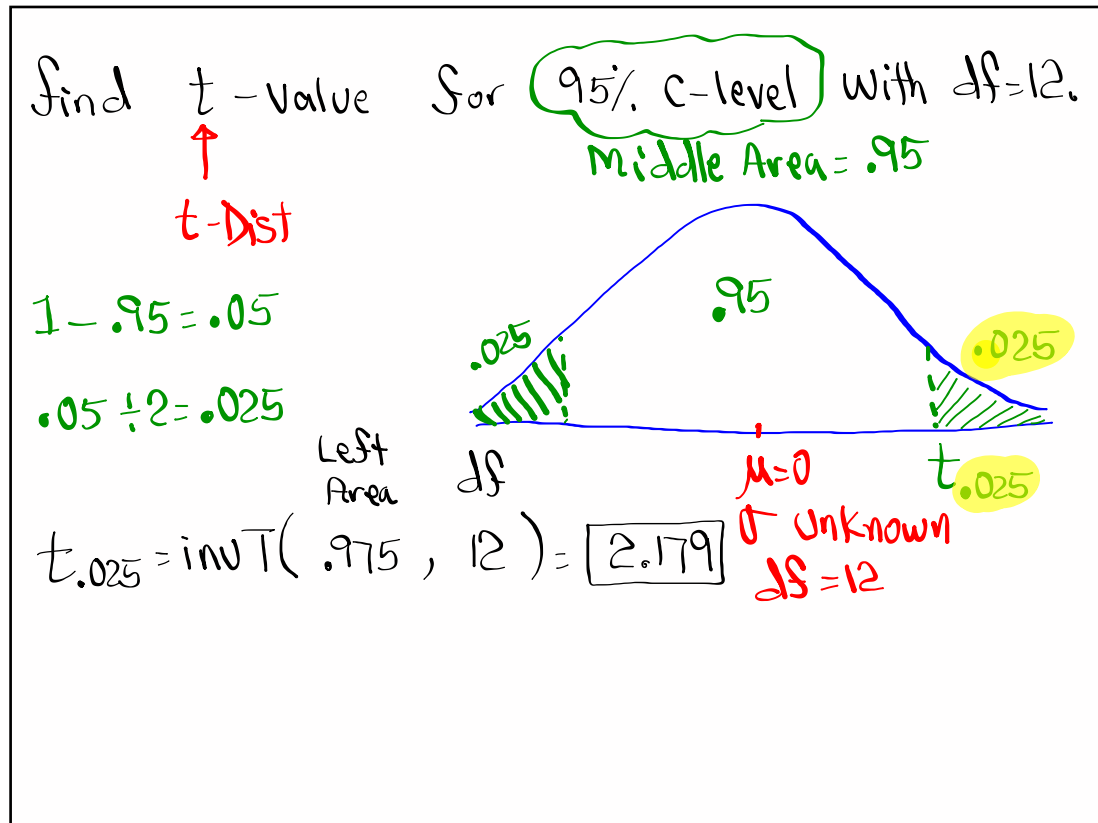 find t-value for 95% C-level with df=12.
Middle Area = .95
t-Dist
1 - .95 = .05
.05 ÷ 2 = .025
.025
.95
.025
Left Area
df
μ=0
t.025
σ Unknown
df=12
t.025 = invT( .975 , 12 ) = 2.179